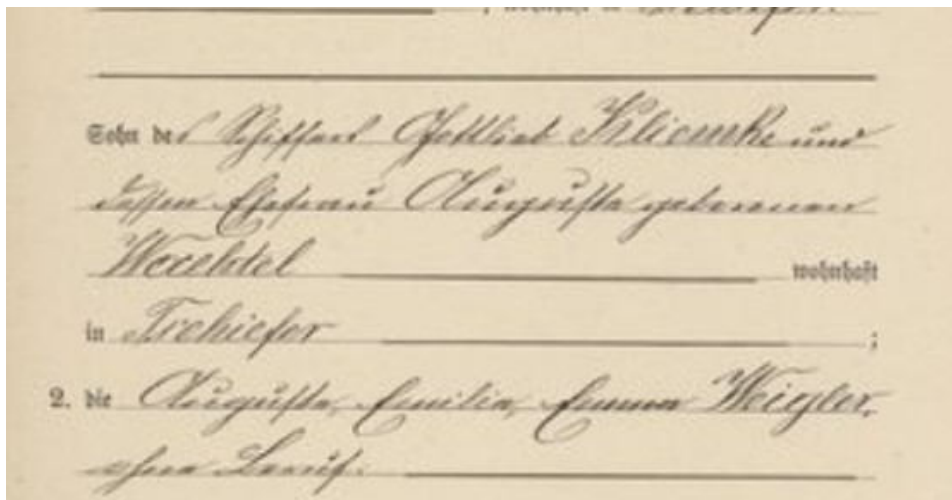 wohnhaft in
Sohn des Schiffers Gottlieb Kliemke und
dessen Ehefrau Auguste geborenen
wohnhaft
in Tschiefer ;
2. die Auguste, Emilie, Emma Weigler,
ohne Beruf.